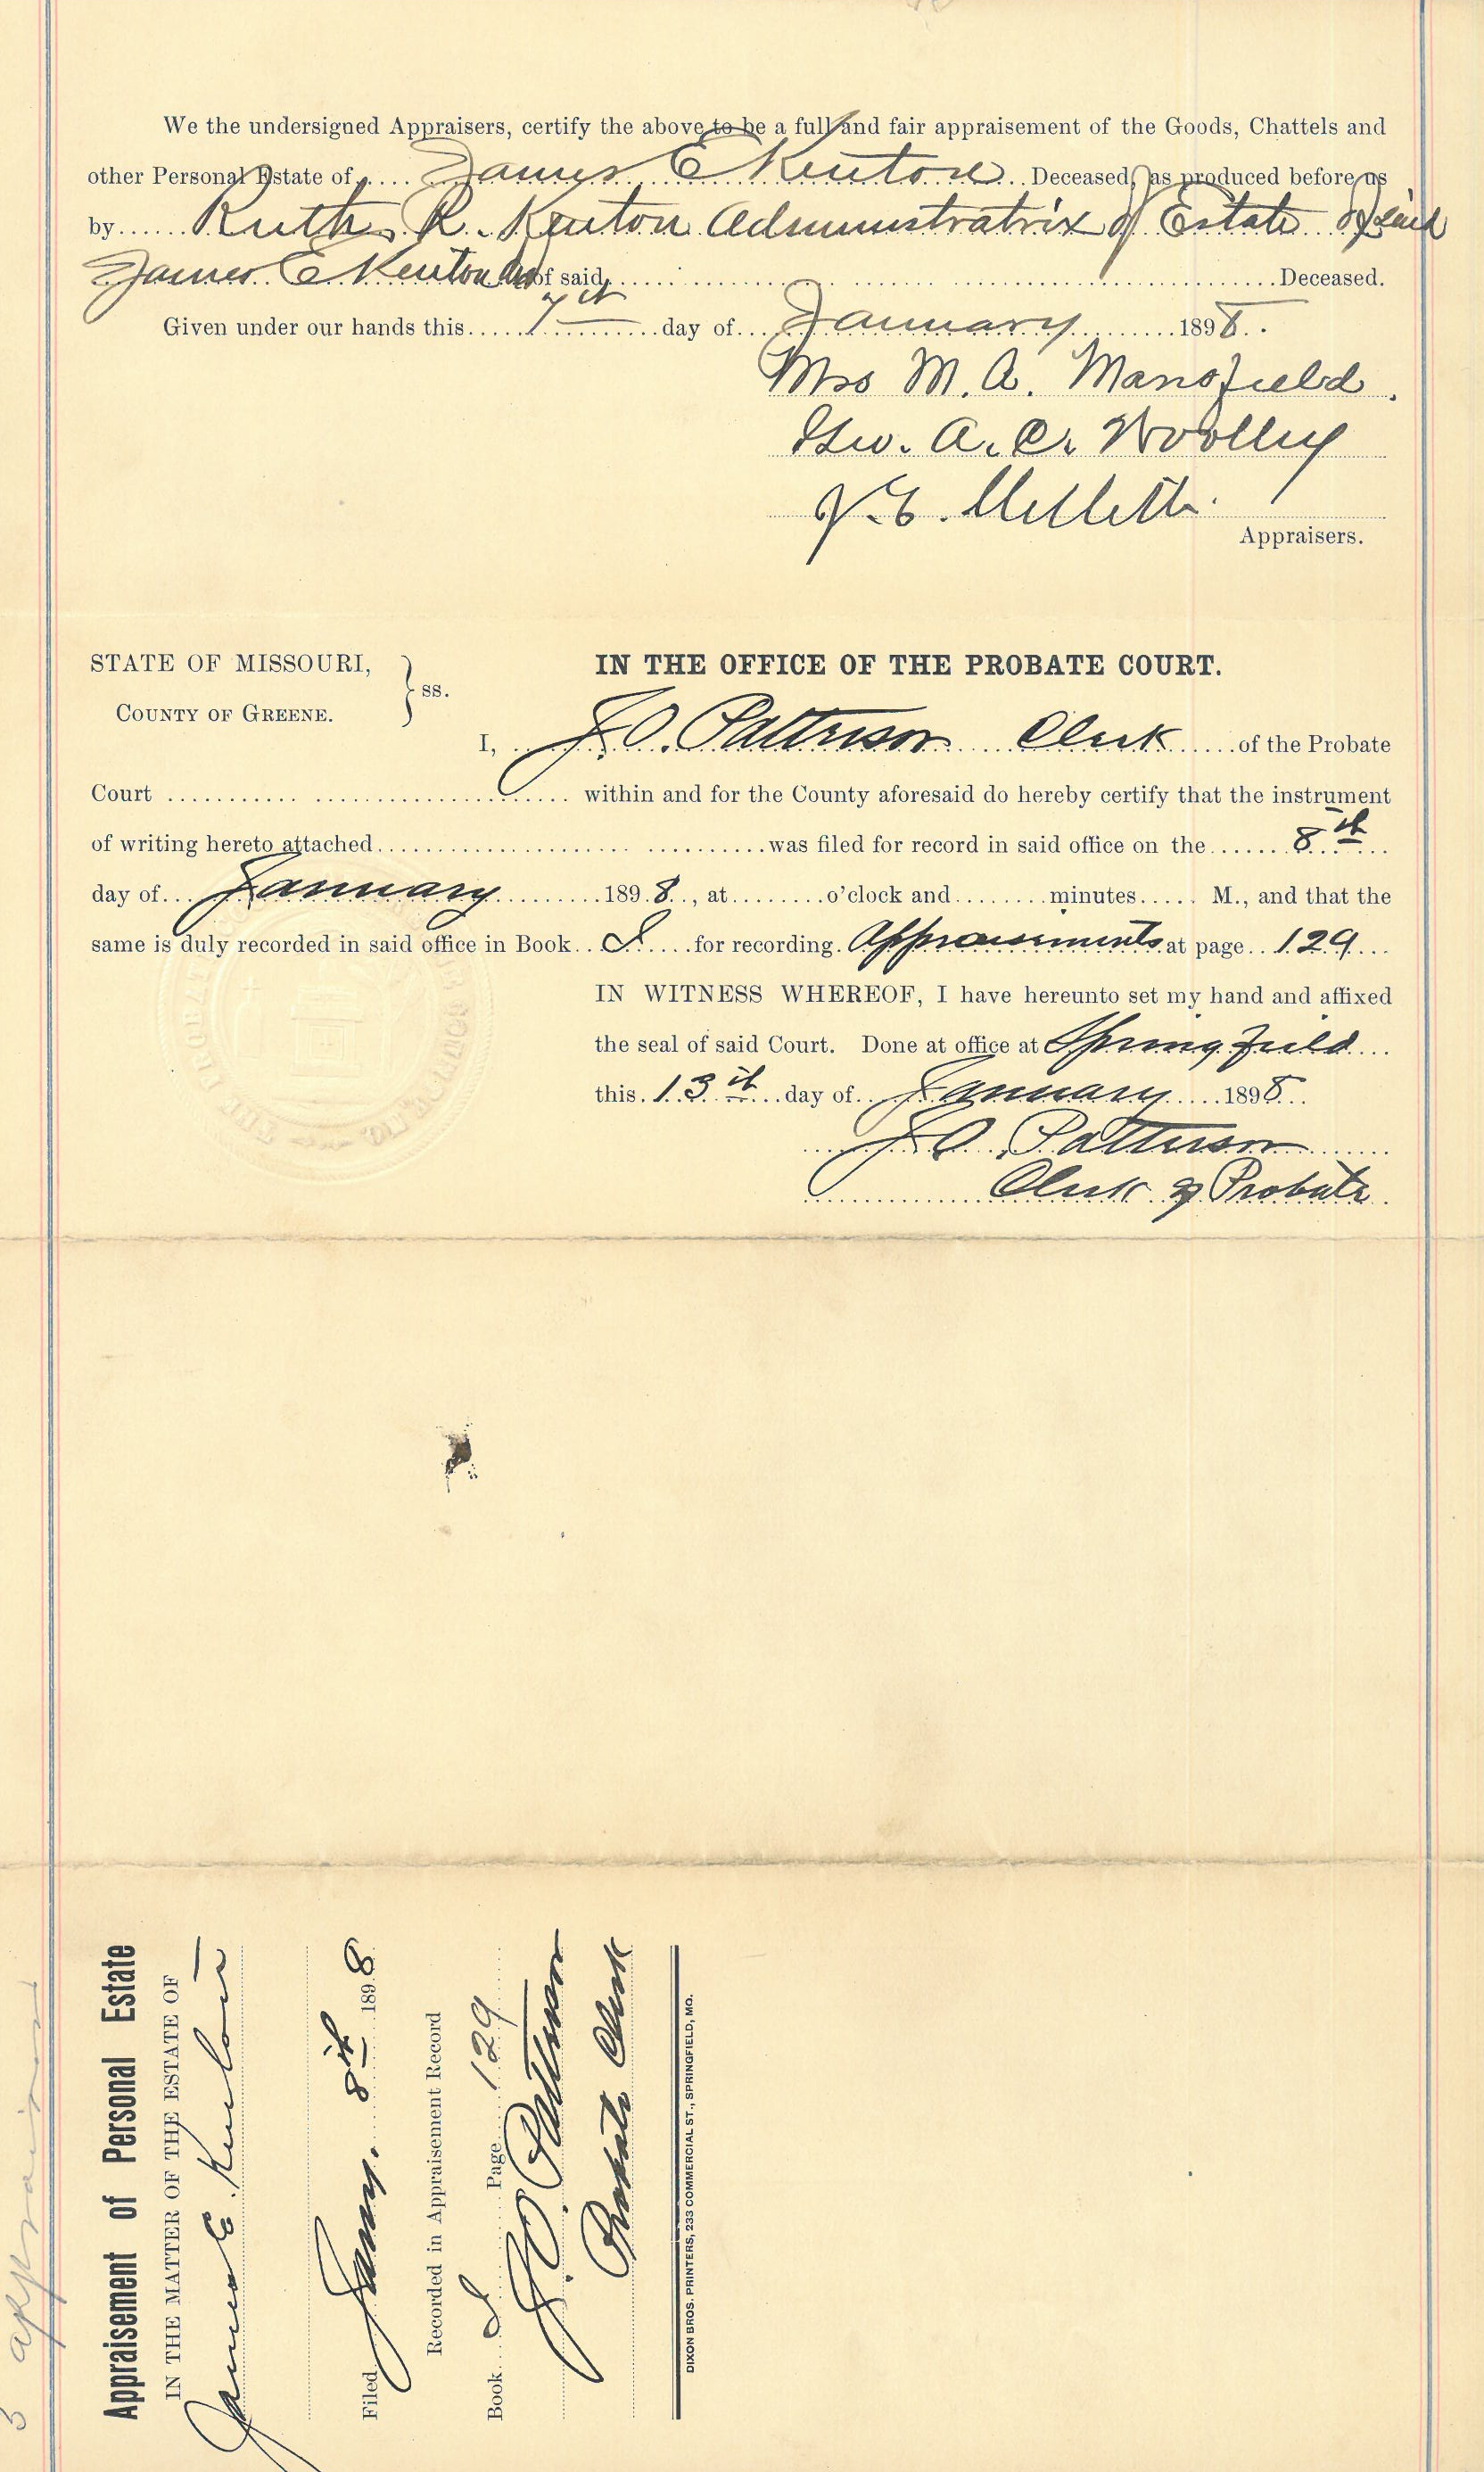 We the undersigned Appraisers, certify the above to be a full and fair appraisement of the Goods, Chattels and
other Personal Estate of James E Kenton Deceased, as produced before us
by Ruth R. Kenton Administratrix of Estate of said
James E Kenton of said Deceased.
Given under our hands this 7th day of January 1898.
Mrs M. A. Mansfield.
Geo. A. C. Woolley
J. E. Mellett.
Appraisers.
STATE OF MISSOURI,
COUNTY OF GREENE.
ss.
IN THE OFFICE OF THE PROBATE COURT.
I, J. O. Patterson Clerk of the Probate
Court within and for the County aforesaid do hereby certify that the instrument
of writing hereto attached was filed for record in said office on the 8th
day of January 1898, at o'clock and minutes M., and that the
same is duly recorded in said office in Book I for recording Appraisements at page 129
IN WITNESS WHEREOF, I have hereunto set my hand and affixed
the seal of said Court. Done at office at Springfield
this 13th day of January 1898
J. O. Patterson
Clerk of Probate.
3 appraisers
Appraisement of Personal Estate
IN THE MATTER OF THE ESTATE OF
James E. Kenton
Filed Jany. 8th 1898
Recorded in Appraisement Record
Book I Page 129
J. O. Patterson
Probate Clerk
DIXON BROS. PRINTERS, 233 COMMERCIAL ST., SPRINGFIELD, MO.